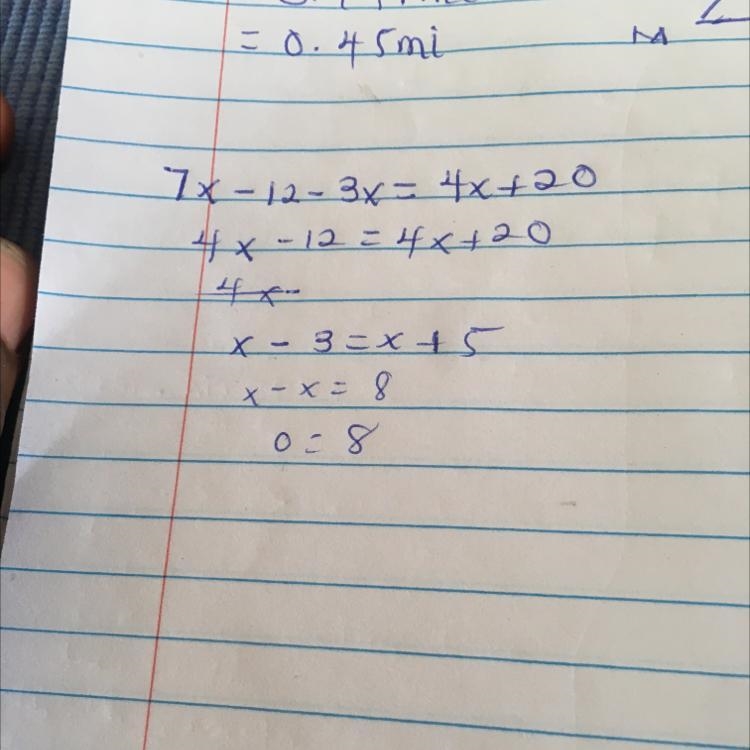 = 0.45mi
M
7x - 12 - 3x = 4x + 20
4x - 12 = 4x + 20
4x -
x - 3 = x + 5
x - x = 8
0 = 8